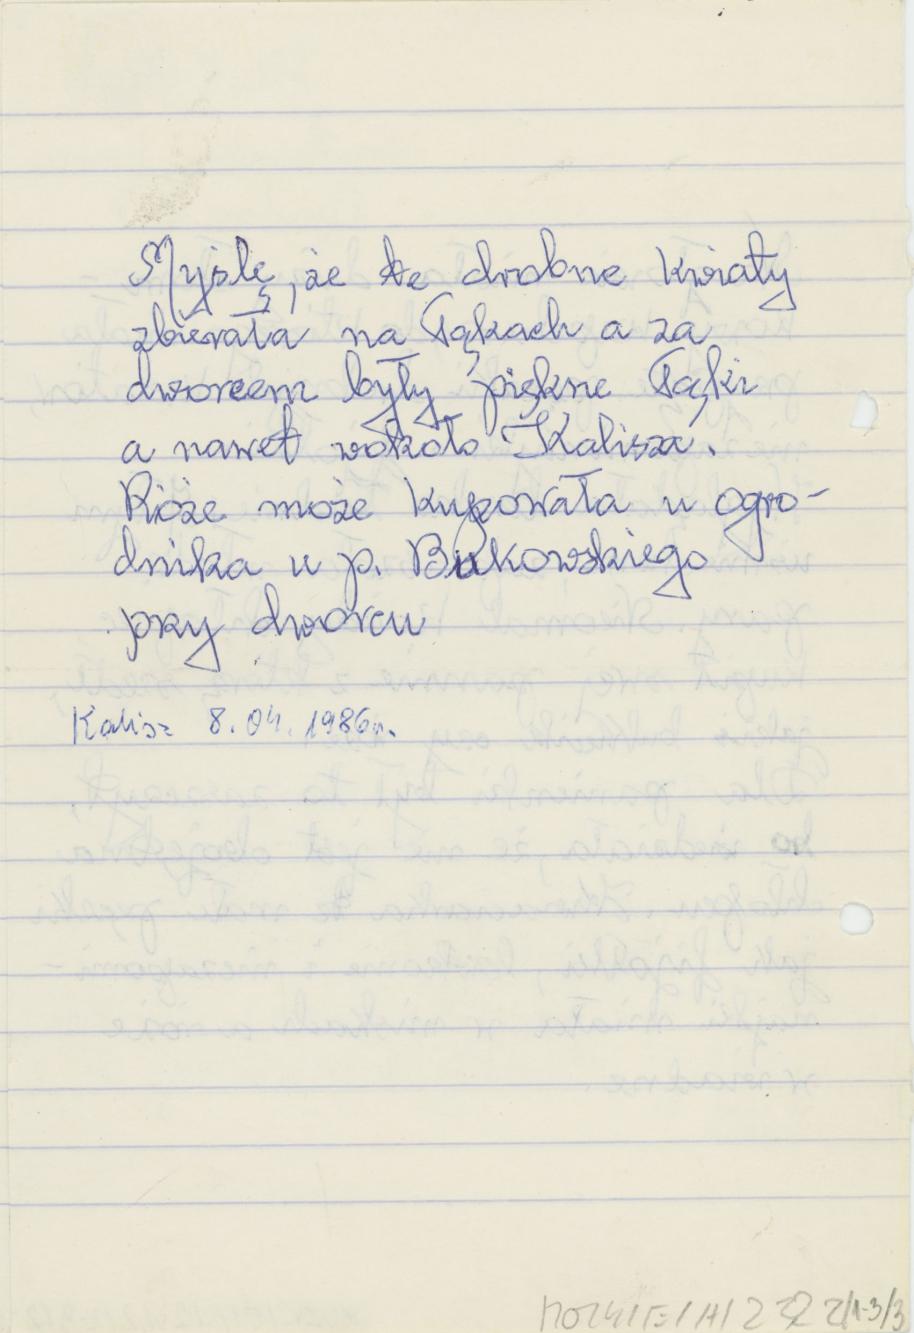 Myślę, że te drobne kwiaty
zbierała na łąkach a za
dworcem były piękne łąki
a nawet wokoło Kalisza.
Róże może kupowała u ogro-
dnika u p. Bukowskiego
przy dworcu
Kalisz 8.04.1986r.